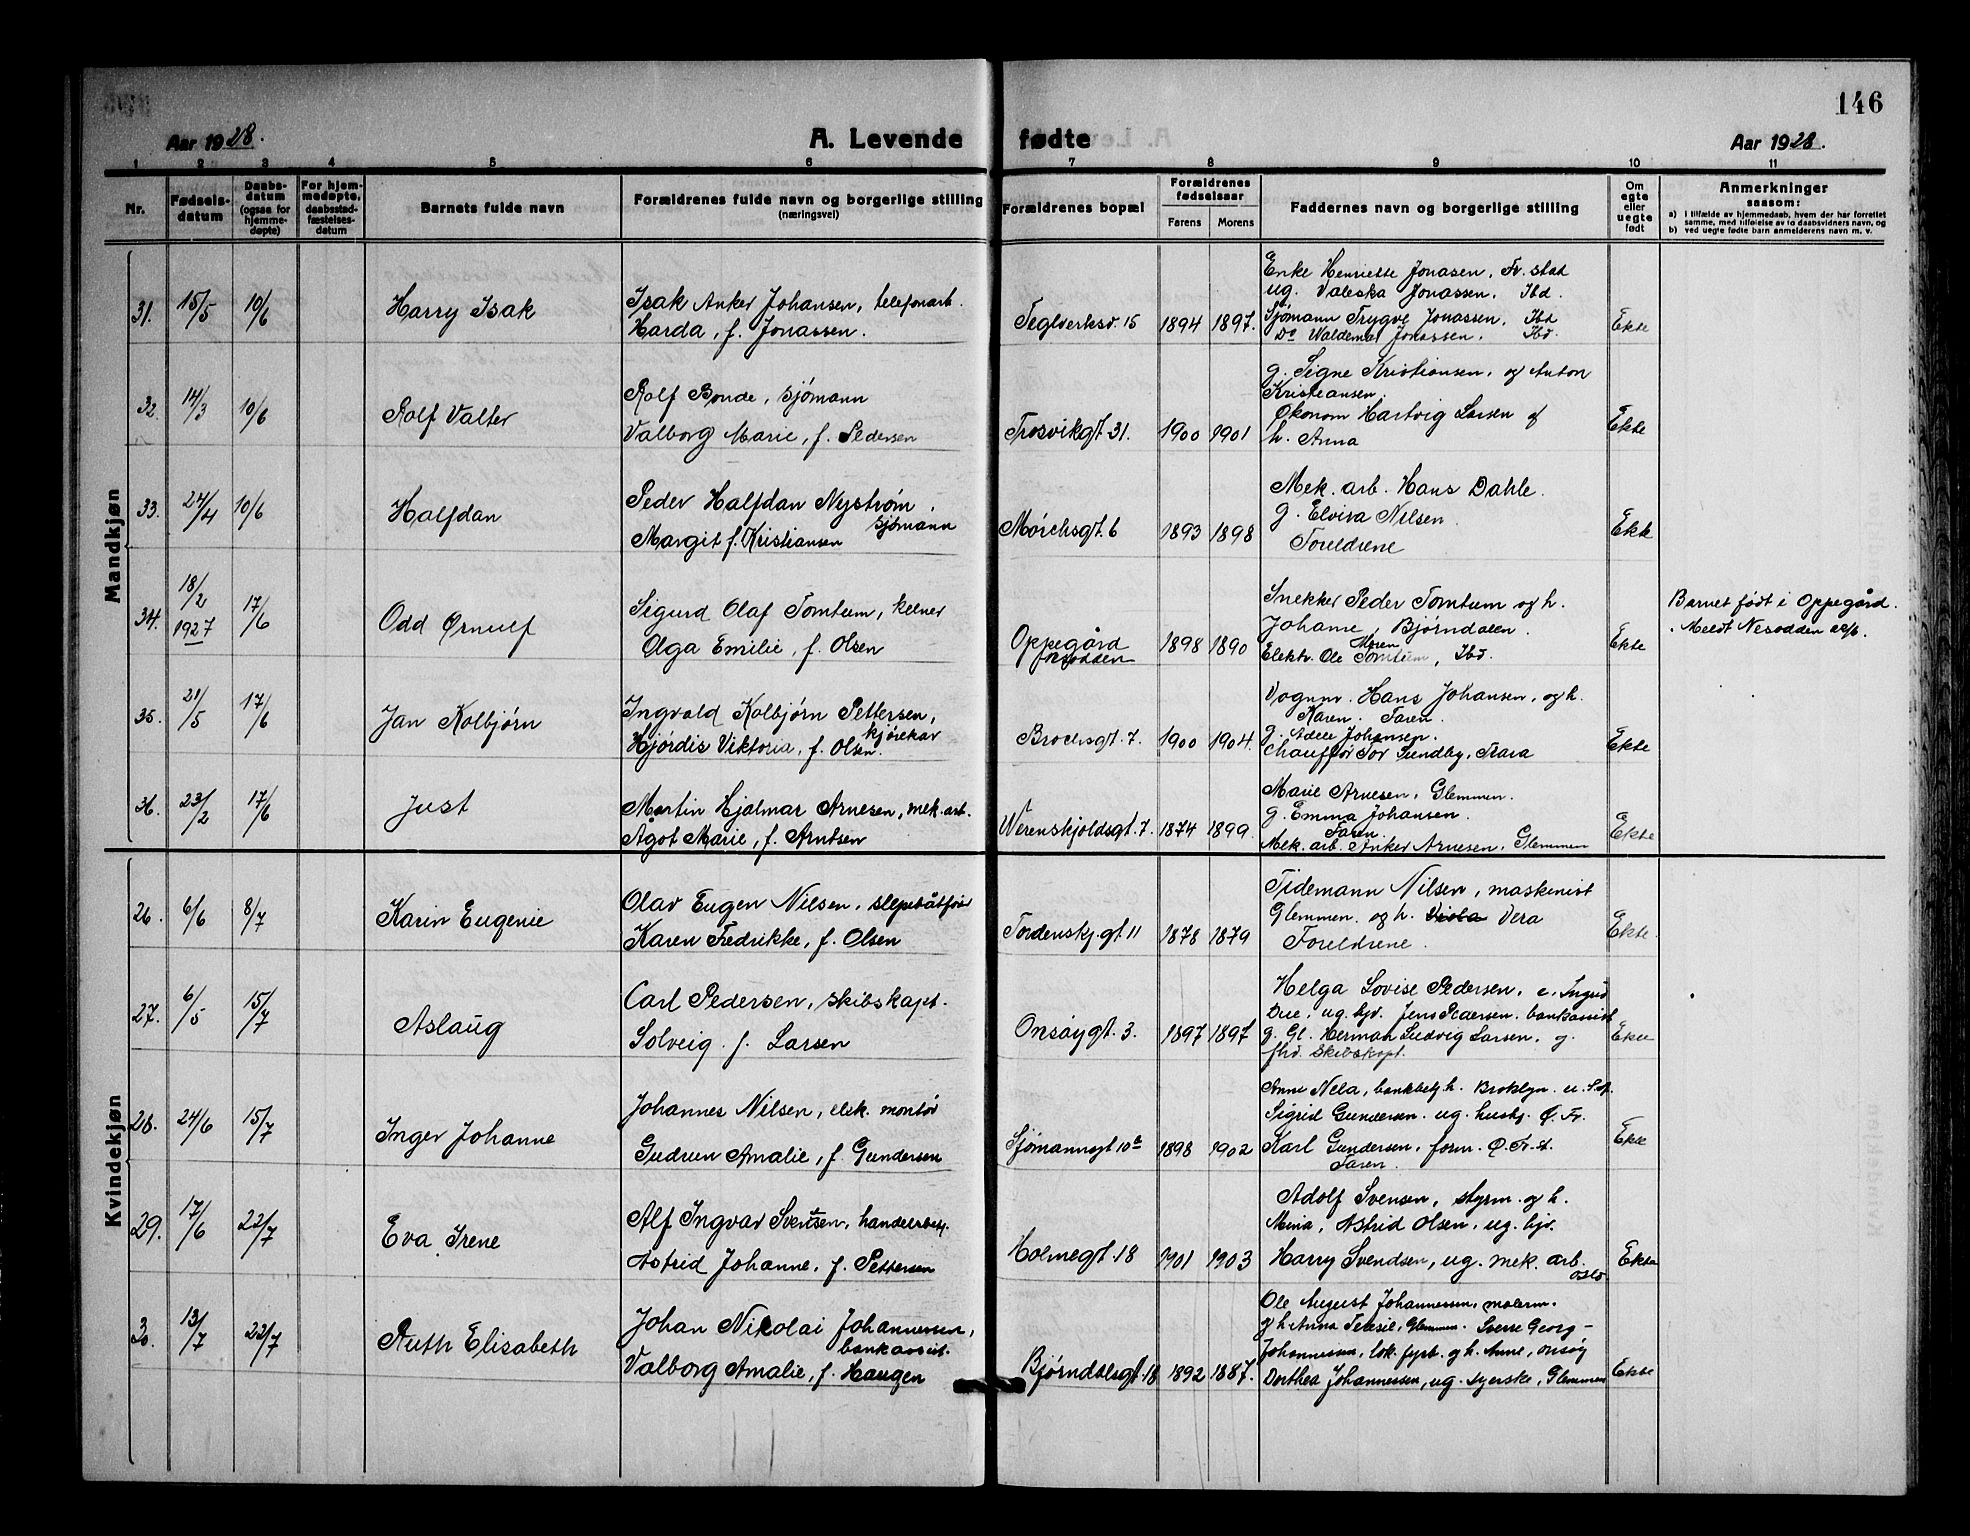 146
Aar 1928.
A. Levende fødte
Aar 1928.
1 2 3 4 5 6 7 8 9 10 11
Nr.
Fødsels-
datum
Daabs-
datum
(ogsaa for
hjemme-
døpte)
For hjem-
medøpte,
daabsstad-
fæstelses-
datum
Barnets fulde navn
Forældrenes fulde navn og borgerlige stilling
(næringsvei)
Forældrenes bopæl
Forældrenes
fødselsaar
Farens Morens
Faddernes navn og borgerlige stilling
Om
egte
eller
uegte
født
Anmerkninger
saasom:
a) I tilfælde av hjemmedaab, hvem der har forrettet
samme, med tilføielse av to daabsvidners navn, og
b) ved uegte fødte barn anmelderens navn m. v.
Mandkjøn
31. 15/5 10/6
Harry Isak
Isak Anker Johansen, telefonarb.
Harda, f. Jonassen.
Teglverksv. 15 1894 1897.
Enke Henriette Jonasen, Fr.stad
ug. Valeska Jonassen. Ibd.
Sjømann Trygve Jonassen, Ibd
Do Waldemar Jonassen. Ibd.
Ekte
32. 14/3 10/6
Rolf Valter
Rolf Bonde, sjømann
Valborg Marie, f. Pedersen
Trosvikgt. 31. 1900 1901
g. Signe Kristiansen, og Anton
Kristiansen.
Økonom Hartvig Larsen og
h. Anna
Ekte
33. 24/4 10/6
Halfdan
Peder Halfdan Nystrøm,
sjømann
Margit f. Kristiansen
Mørchsgt. 6 1893 1898
Mek. arb. Hans Dahle.
g. Elvira Nilsen.
Foreldrene
Ekte
34. 18/2 1927 17/6
Odd Ørnulf
Sigurd Olaf Tomtum, kelner
Olga Emilie, f. Olsen
Oppegård
Nesodden
1898 1890
Snekker Peder Tomtum og h.
Johane, Bjørndalen.
Moren
Elektr. Ole Tomtum, Ibd.
Ekte
Barnet født i Oppegård.
Meldt Nesodden
35. 21/5 17/6
Jan Kolbjørn
Ingvald Kolbjørn Pettersen,
kjørekar
Hjørdis Viktoria, f. Olsen.
Brochsgt. 7. 1900 1904.
Vognm. Hans Johansen, og h.
Karen. Faren.
g. Adele Johansen.
Chauffør Tor Sundby, Trara
Ekte
36. 23/2 17/6
Just
Martin Hjalmar Arnesen, mek. arb.
Ågot Marie, f. Arntsen
Werenskjoldsgt. 7. 1874 1899.
Marie Arnesen, Glemmen.
g. Emma Johansen.
Faren.
Mek. arb. Anker Arnesen, Glemmen
Ekte
Kvindekjøn
26. 6/6 8/7
Karin Eugenie
Olav Eugen Nilsen, slepebåtfører
Karen Fredrikke, f. Olsen
Tordenskj.gt 11 1878 1879
Tidemann Nilsen, maskinist
Glemmen. og h. Viola Vera
Foreldrene.
Ekte.
27. 6/5 15/7
Aslaug
Carl Pedersen, skibskapt.
Solveig. f. Larsen
Onsøygt. 3. 1897 1897
Helga Lovise Pedersen, e, Ingrid
Due, ug. hjv. Jens Pedersen. bankassist
g. Gl. Herman Ludvig Larsen, g.
fhv. skibskapt.
Ekte
28. 24/6 15/7
Inger Johanne
Johannes Nilsen, elek. montør
Gudrun Amalie, f. Gundersen
Sjømannsgt 10a 1898 1902
Anne Nela, bankbetj h. Broklyn. U.S.A.
Sigrid Gundersen. ug. husbj. Ø. Fr.
Karl Gundersen, form. Ø. Fr. st.
Faren.
Ekte
29. 17/6 22/7
Eva Irene
Alf Ingvar Svensen, handelsbetj.
Astrid Johanne, f. Pettersen
Holmegt. 18 1901 1903
Adolf Svensen, styrm. og h.
Mina, Astrid Olsen, ug. hjv.
Harry Svendsen, ug. mek. arb.
Oslo
Ekte
30 13/7 22/7
Ruth Elisabeth
Johan Nikolai Johannessen,
bankassist.
Valborg Amalie, f. Haugen
Bjørndalsgt. 18 1892 1887.
Ole August Johannessen, malerm.
g h Anna Telesil, Glemmen. Sverre Georg-
Johannessen, lok. fyrb. og h. Anne, Onsøy
Dorthea Johannessen, ug. syerske, Glemmen
Ekte